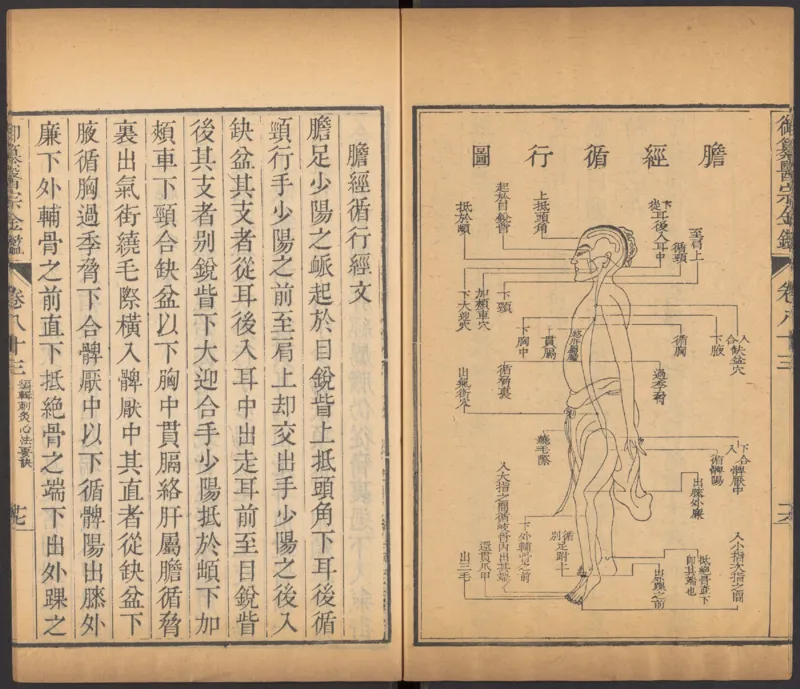 御纂醫宗金鑑
卷八十三
膽經循行圖
至肩上
循頸
下從耳後入耳中
上抵頭角
起於目銳眥
抵於䪼
下頸
加頰車穴
下大迎穴
入合缺盆穴
下腋
循胸
貫膈
下胸中
過季脅
循脅裏
出氣街穴
繞毛際
下合髀厭中
循髀陽
出膝外廉
下外輔骨之前
抵絕骨直下
卽其端也
出外踝之前
循足跗上
入小指次指之間
入大指之間循岐骨內出其端
還貫爪甲
出三毛
膽經循行經文
膽足少陽之脈起於目銳眥上抵頭角下耳後循
頸行手少陽之前至肩上却交出手少陽之後入
缺盆其支者從耳後入耳中出走耳前至目銳眥
後其支者別銳眥下大迎合手少陽抵於䪼下加
頰車下頸合缺盆以下胸中貫膈絡肝屬膽循脅
裏出氣街繞毛際橫入髀厭中其直者從缺盆下
腋循胸過季脅下合髀厭中以下循髀陽出膝外
廉下外輔骨之前直下抵絕骨之端下出外踝之
御纂醫宗金鑑
卷八十三
編輯刺灸心法要訣